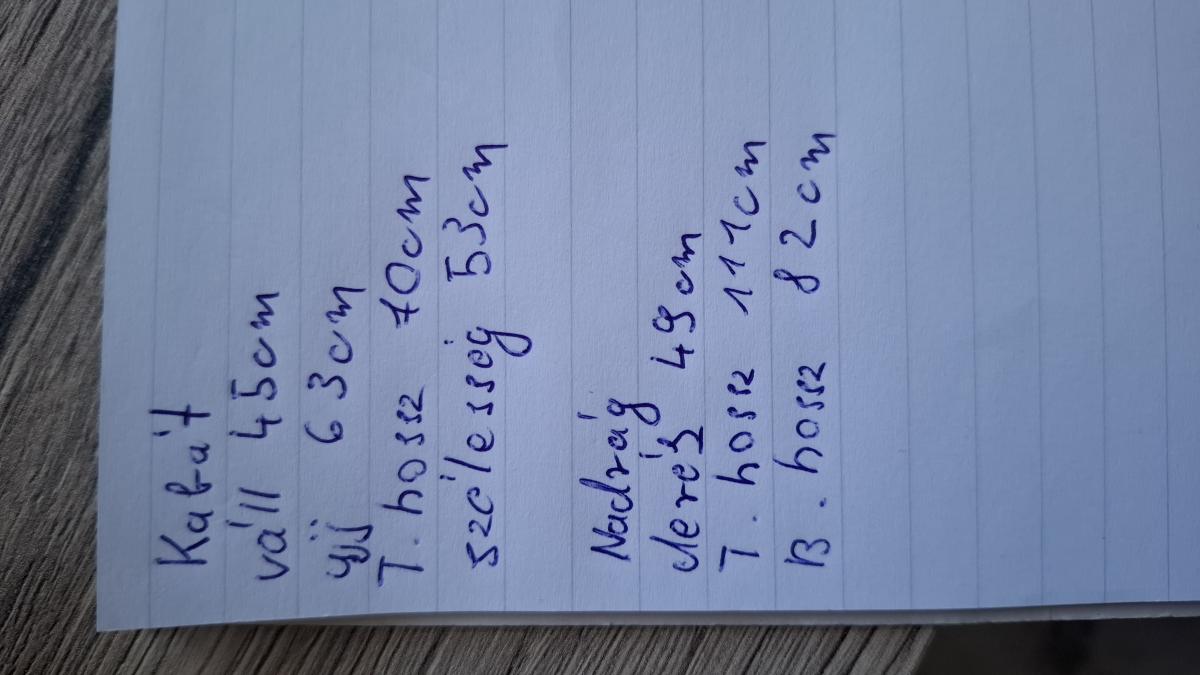 Kabát
váll 45cm
ujj 63cm
T. hossz 70cm
szélesség 53cm
Nadrág
derék 49cm
T. hossz 111cm
B. hossz 82cm